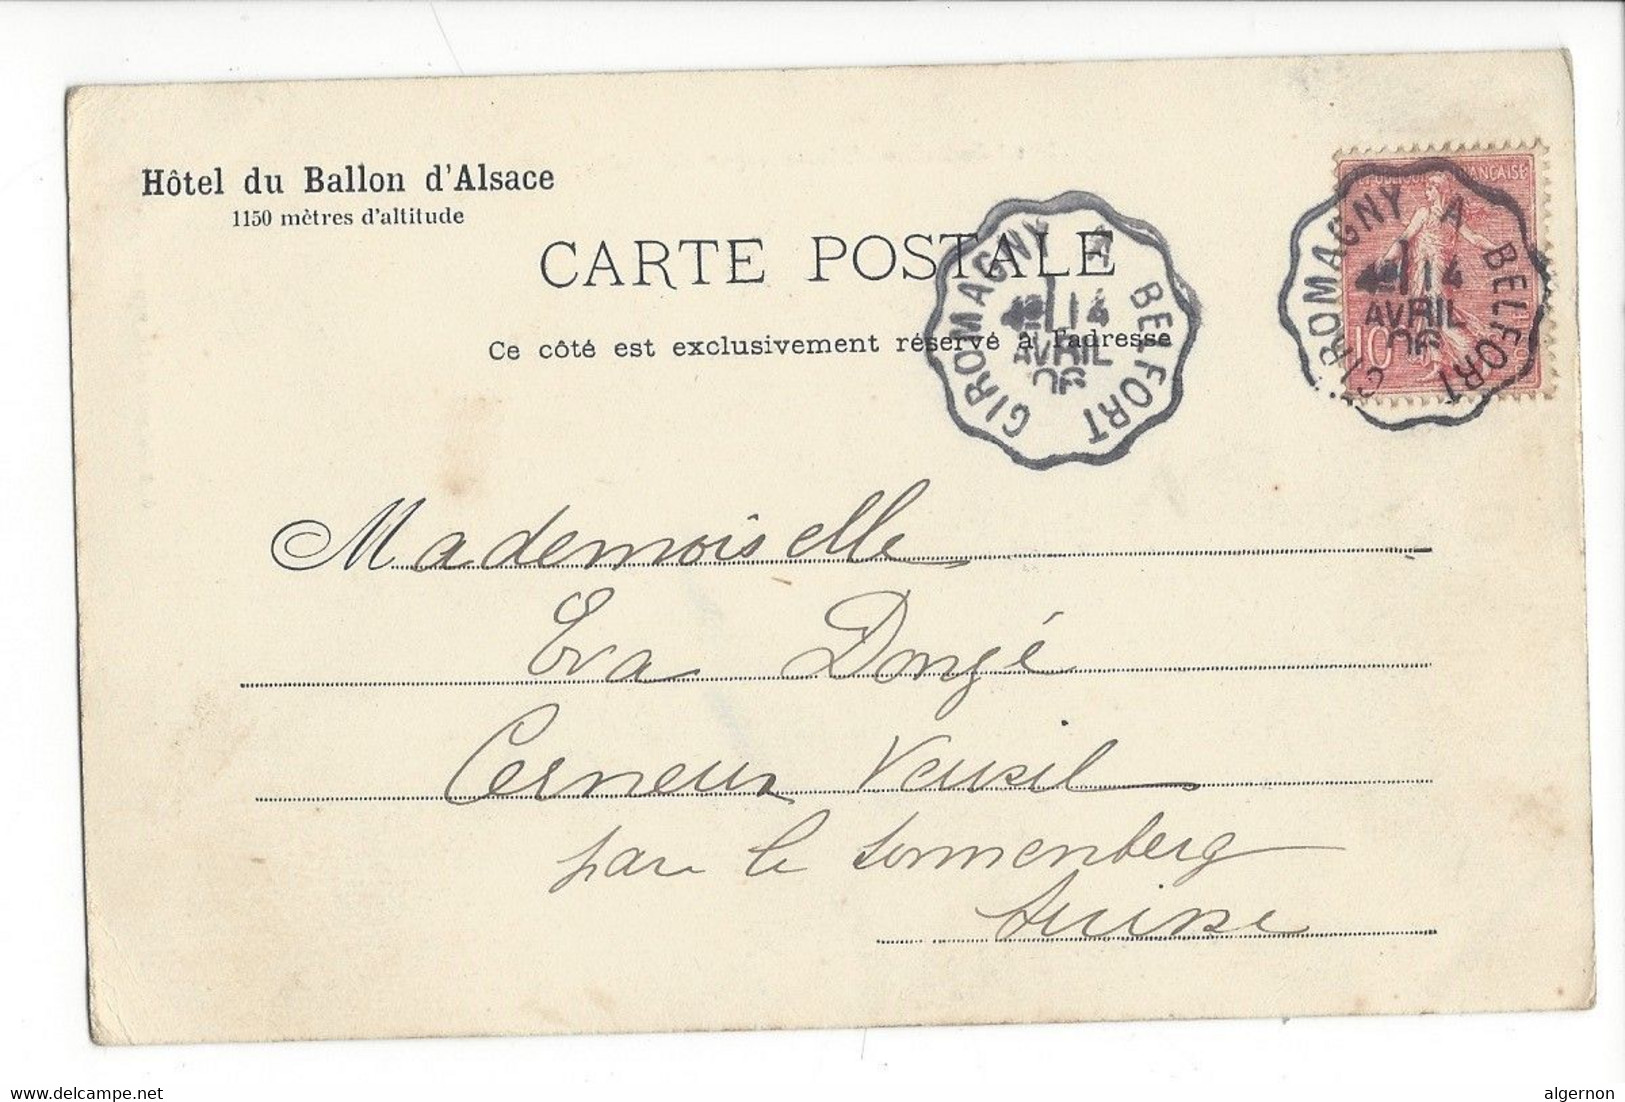 Hôtel du Ballon d'Alsace
1150 mètres d'altitude
CARTE POSTALE
Ce côté est exclusivement réservé à l'adresse
GIROMAGNY A BELFORT
4E 14
AVRIL
06
RÉPUBLIQUE FRANÇAISE
10
GIROMAGNY A BELFORT
4E 14
AVRIL
06
Mademoiselle
Eva Dongé
Cerneux Veusil
par le Sonnenberg
Suisse
www.delcampe.net
algernon